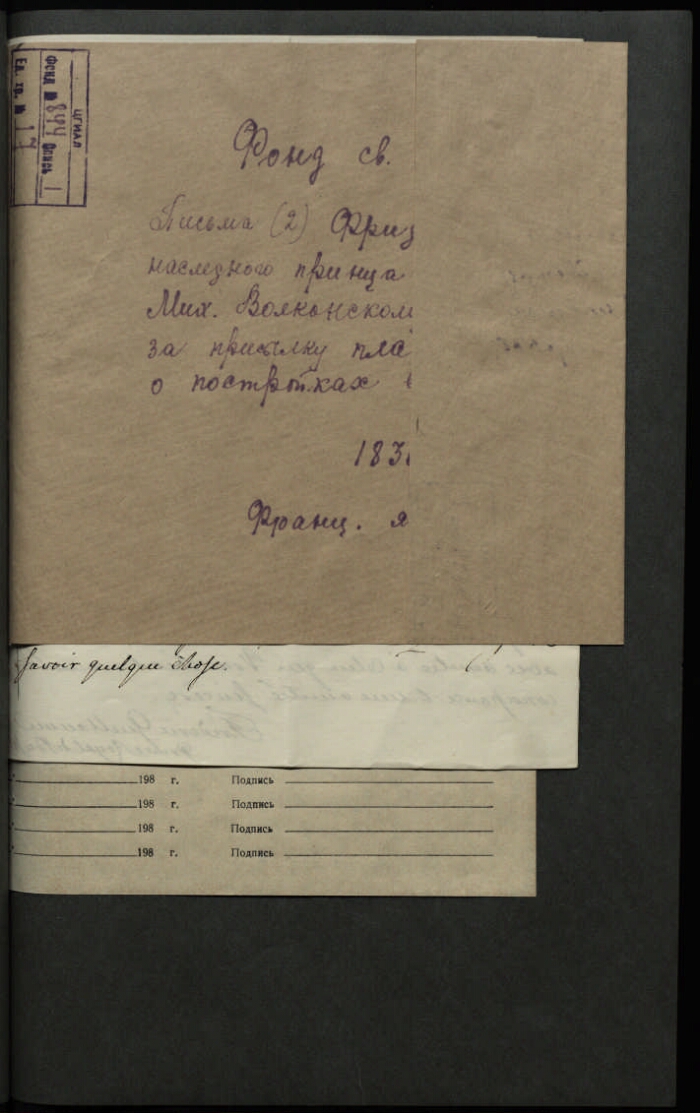 ЦГИАЛ
Фонд № 844 Опись 1
Ед. хр. № 17
Фонд св.
Письма (2) Фрид
наследного принца
Мих. Волконском
за присылку пла
о постройках
183
Франц. я
savoir quelque chose.
198 г. Подпись
198 г. Подпись
198 г. Подпись
198 г. Подпись